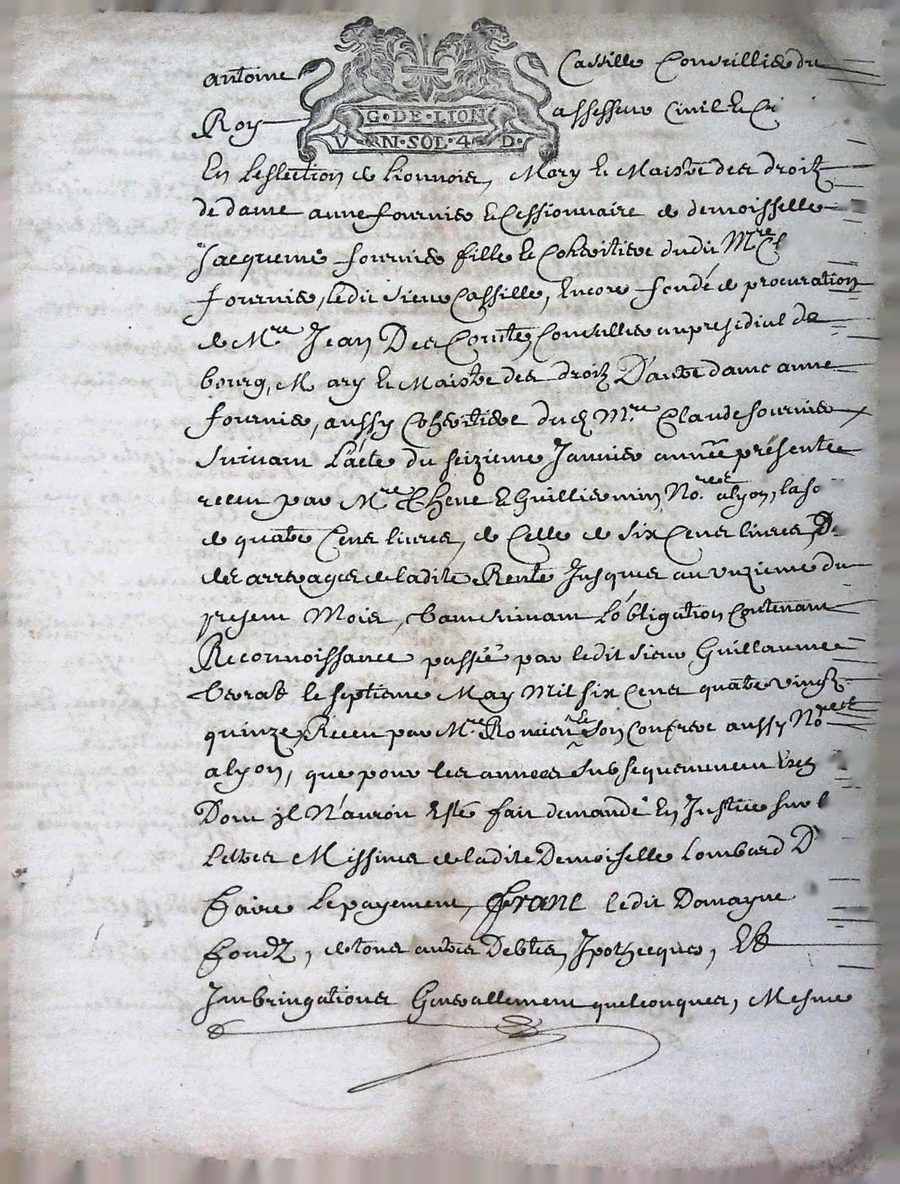 antoine Cassille Conseillier du
G·DE·LION
Roy assesseur Civil & Cri
V N·SOL·4·D·
En Leslection de lionnois, Mary & Maistre des droitz
de dame anne fournier & Cessionnaire de demoisselle
Jacqueme fournier fille & Coheritiere dudit Mre Cl
fournier, ledit sieur Cassille, Encore fondé de procuration
de Mre Jean Des Comtes Conseillier au presidial de
bourg, Mary & Maistre des droitz D'autre dame anne
fournier, aussy Coheritiere dud Mre Claude fournier
Suivant L'acte du seizieme Janvier année présente
receu par Mre & Guilliermin Nores alyon, la so
de quatre Cens livres, de Celle de six Cens livres, D
des arrerages de ladite Rente Jusques au unzieme du
present Mois, tant suivant L'obligation Contenant
Reconnoissance passée par ledit sieur Guillaume
le septieme May Mil six Cens quatre vingtz
quinze, Receu par Mre son Confrere aussy Nore
alyon, que pour les années subsequemment
Dont jl N'auroit Esté fait demande En Justice sur l
Lettres Missives de ladite Demoiselle Lombard D
faire Le payement, franc ledit Domayne
fondz, de tous autres Debtes, Jpothecques, Et
Jmbringations Generallement quelconques, Mesme